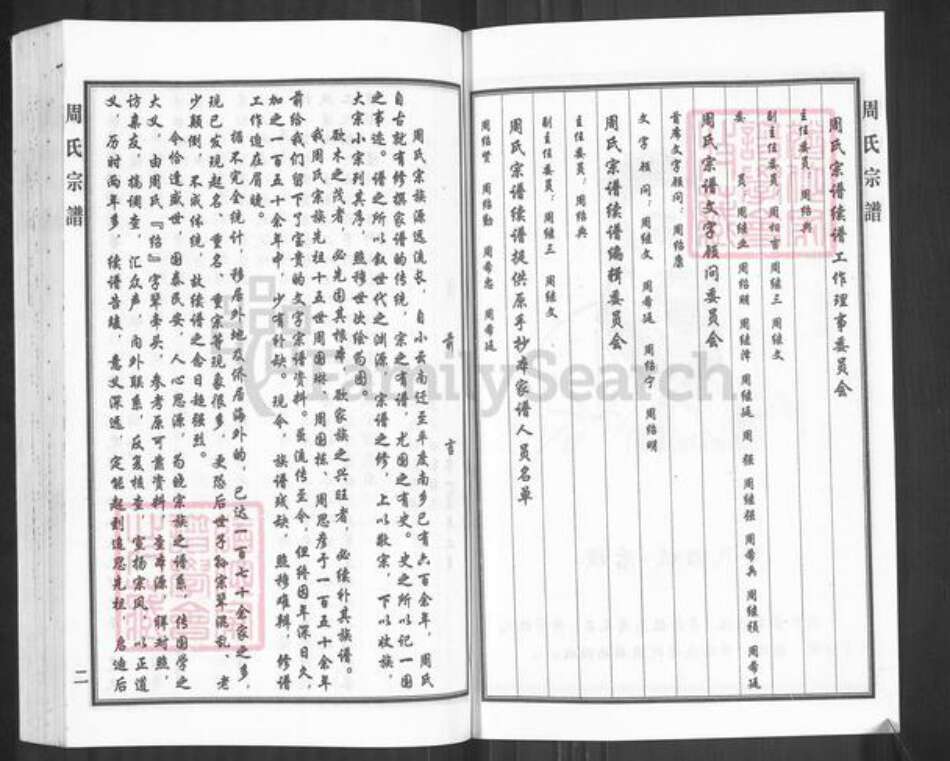 周氏宗谱
周氏宗谱续谱工作理事委员会
主任委员：周绍典
副主任委员：周相吉 周继三 周继文
委 员：周继业 周绍明 周继泽 周继延 周强 周继强 周希兵 周继祯 周希延
周氏宗谱文字顾问委员会
首席文字顾问：周绍康
文字顾问：周继文 周希延 周绍宁 周绍明
周氏宗谱续谱编辑委员会
主任委员：周绍典
副主任委员：周继三 周继文
周氏宗谱续谱提供原手抄本家谱人员名单
周绍贤 周绍勤 周希忠 周希延
前 言
周氏宗族源远流长，自小云南迁至平度南乡已有六百余年，周氏
自古就有修撰家谱的传统，宗之有谱，尤国之有史。史之所以记一国
之事迹。谱之所以叙世代之渊源，宗谱之修，上以敬宗，下以收族，
大宗小宗列其序，照穆世次绘为图。
欲木之茂者，必先固其根本，欲家族之兴旺者，必续补其族谱。
我周氏宗族先祖十五世周国琳、周国栋、周思彦于一百五十余年
前给我们留下了宝贵的文字宗谱资料。虽流传至今，但终因年深日久，
加之一百五十余年中，少有补缺。现今，族谱残缺，照穆难辨，修谱
工作迫在眉睫。
据不完全统计，移居外地及侨居海外的，已达一百七十余家之多，
现已发现起名、重名、重宗等现象很多，更恐后世子孙宗辈混乱，老
少颠倒，不成体统，故续谱之念日趋强烈。
今恰逢盛世，国泰民安，人心思源，为晓宗族之谱系，传国学之
大义，由周氏『绍』字辈牵头，参考原可靠资料，查本源，详对照，
访亲友，搞调查，汇众声，内外联系，反复核查，宣扬宗风，以正道
义，历时两年多，续谱告竣，意义深远，定能起到追思先祖，启迪后
周氏宗谱
二
FamilySearch